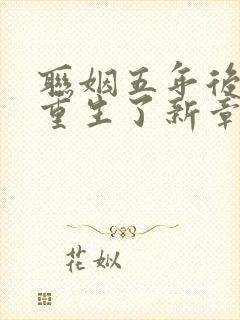 聯姻五年後
重生了新章
花姒